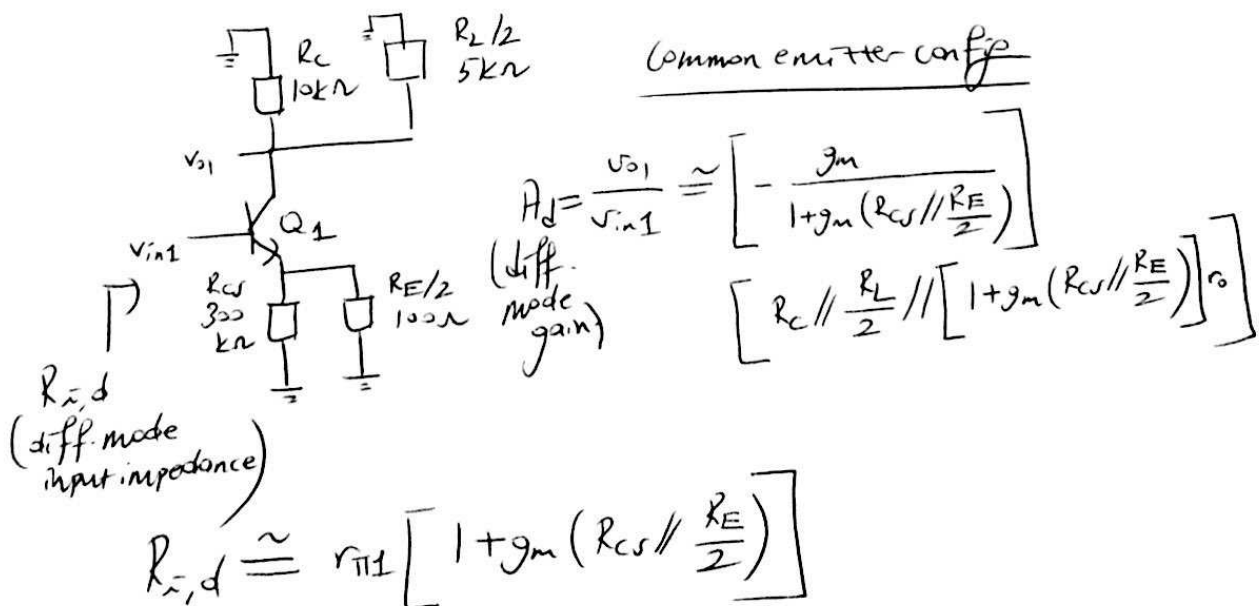 R_C
10kΩ
R_L/2
5kΩ
Common emitter config
v_o1
Q1
v_in1
R_cs
300
kΩ
R_E/2
100Ω
A_d = v_o1 / v_in1 ≅ [ - g_m / (1+g_m(R_cs // R_E/2)) ]
(diff.
mode
gain)
[ R_C // R_L/2 // [ 1+g_m(R_cs // R_E/2) ] r_o ]
R_i,d
(diff. mode
input impedance)
R_i,d ≅ r_π1 [ 1+g_m(R_cs // R_E/2) ]